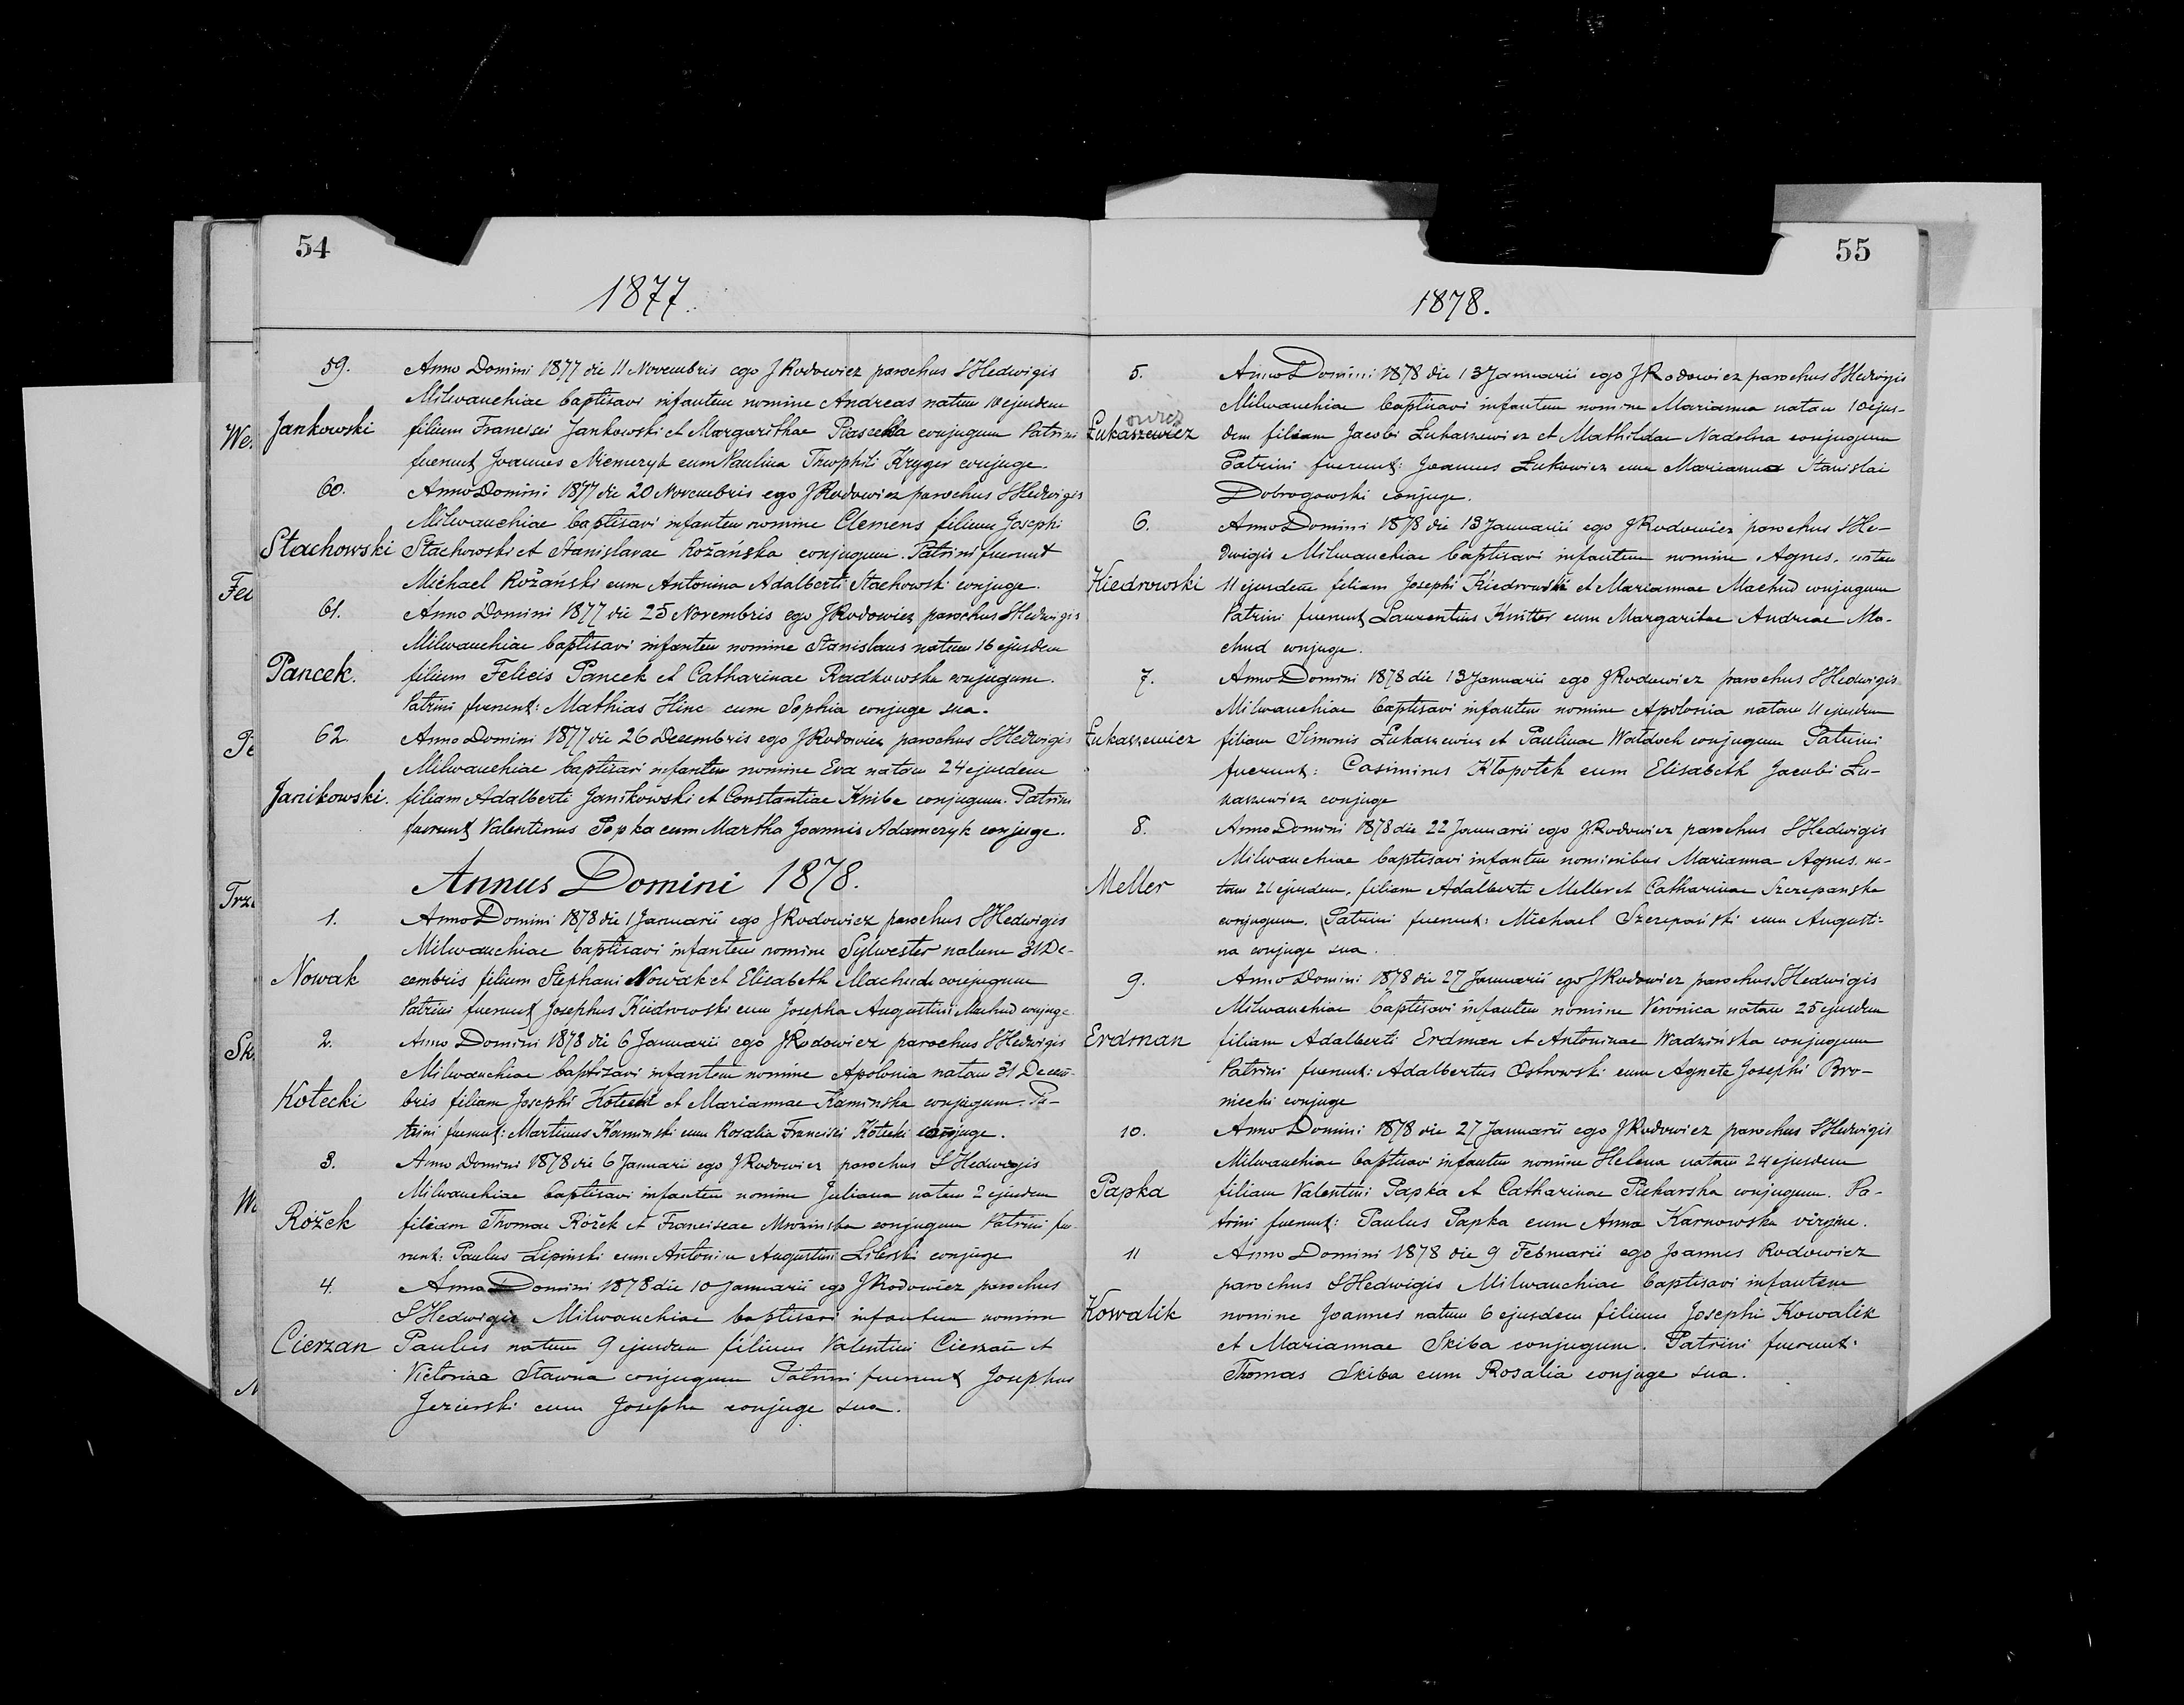 54
1877.
59.
Anno Domini 1877 die 11 Novembris ego J Rodowicz parochus S Hedwigis
Milwauchiae baptisavi infantem nomine Andreas natum 10 ejusdem
Jankowski
filium Francisci Jankowski et Margarithae conjugum Patrini
fuerunt Joannes Niemczyk cum Paulina Theophili Kryger conjuge.
60.
Anno Domini 1877 die 20 Novembris ego J Rodowicz parochus S Hedwigis
Milwauchiae baptisavi infantem nomine Clemens filium Josephi
Stachowski
Stachowski et Stanislavae Rožańska conjugum. Patrini fuerunt
Michael Rožański cum Antonina Adalberti Stachowski conjuge.
61.
Anno Domini 1877 die 25 Novembris ego J Rodowicz parochus S Hedwigis
Milwauchiae baptisavi infantem nomine Stanislaus natum 16 ejusdem
Pancek.
filium Felicis Pancek et Catharinae Radkowska conjugum.
Patrini fuerunt: Mathias Hinc cum Sophia conjuge sua.
62.
Anno Domini 1877 die 26 Decembris ego J Rodowicz parochus S Hedwigis
Milwauchiae baptisavi infantem nomine Eva natam 24 ejusdem
Janikowski.
filiam Adalberti Janikowski et Constantiae Kniba conjugum. Patrini
fuerunt Valentinus Popka cum Martha Joannis Adamczyk conjuge.
Annus Domini 1878.
1.
Anno Domini 1878 die 1 Januarii ego J Rodowicz parochus S Hedwigis
Milwauchiae baptisavi infantem nomine Sylwester natum 31 De-
Nowak
cembris filium Stephani Nowak et Elisabeth Machuda conjugum
Patrini fuerunt Josephus Kiedrowski cum Josepha Augustini Machud conjuge
2.
Anno Domini 1878 die 6 Januarii ego J Rodowicz parochus S Hedwigis
Milwauchiae baptisavi infantem nomine Apolonia natam 31 Decem-
Kotecki
bris filiam Josephi Kotecki et Mariannae Kaminska conjugum. Pa-
trini fuerunt: Martinus Kaminski cum Rosalia Francisci Kotecki conjuge.
3.
Anno Domini 1878 die 6 Januarii ego J Rodowicz parochus S Hedwigis
Milwauchiae baptisavi infantem nomine Juliana natam 2 ejusdem
Rožek
filiam Thomae Rožek et Franciscae Mrozinska conjugum Patrini fue-
runt: Paulus Lipinski cum Antonina Augustini Liberski conjuge
4.
Anno Domini 1878 die 10 Januarii ego J Rodowicz parochus
S Hedwigis Milwauchiae baptisavi infantem nomine
Cierzan
Paulus natum 9 ejusdem filium Valentini Cierzan et
Victoriae Stawna conjugum Patrini fuerunt Josephus
Jezierski cum Josepha conjuge sua.
55
1878.
5.
Anno Domini 1878 die 13 Januarii ego J Rodowicz parochus S Hedwigis
Milwauchiae baptisavi infantem nomine Marianna natam 10 ejus-
owicz
Łukaszewicz
dem filiam Jacobi Łukaszewicz et Mathildae Nadolna conjugum
Patrini fuerunt: Joannes Lukowicz cum Marianna Stanislai
Dobrogowski conjuge.
6.
Anno Domini 1878 die 13 Januarii ego J Rodowicz parochus S He-
dwigis Milwauchiae baptisavi infantem nomine Agnes. natam
Kiedrowski
11 ejusdem filiam Josephi Kiedrowski et Mariannae Machud conjugum
Patrini fuerunt Laurentius Knitter cum Margaritae Andreae Ma-
chud conjuge.
7.
Anno Domini 1878 die 13 Januarii ego J Rodowicz parochus S Hedwigis
Milwauchiae baptisavi infantem nomine Apolonia natam 11 ejusdem
Łukaszewicz
filiam Simonis Łukaszewicz et Paulinae Wołdoch conjugum Patrini
fuerunt: Casimirus Kłopotek cum Elisabeth Jacobi Łu-
kaszewicz conjuge
8.
Anno Domini 1878 die 22 Januarii ego J Rodowicz parochus S Hedwigis
Milwauchiae baptisavi infantem nominibus Marianna Agnes. na-
Meller
tam 21 ejusdem, filiam Adalberti Meller et Catharinae Szczepanska
conjugum. Patrini fuerunt: Michael Szczepański cum Augusti-
na conjuge sua.
9.
Anno Domini 1878 die 27 Januarii ego J Rodowicz parochus S Hedwigis
Milwauchiae baptisavi infantem nomine Veronica natam 25 ejusdem
Erdman
filiam Adalberti Erdman et Antoninae Wadzińska conjugum
Patrini fuerunt: Adalbertus Ostrowski cum Agneta Josephi Bro-
niecki conjuge
10.
Anno Domini 1878 die 27 Januarii ego J Rodowicz parochus S Hedwigis
Milwauchiae baptisavi infantem nomine Helena natam 24 ejusdem
Papka
filiam Valentini Papka et Catharinae Piekarska conjugum. Pa-
trini fuerunt: Paulus Papka cum Anna Karnowska virgine.
11
Anno Domini 1878 die 9 Februarii ego Joannes Rodowicz
parochus S Hedwigis Milwauchiae baptisavi infantem
Kowalik
nomine Joannes natum 6 ejusdem filium Josephi Kowalik
et Mariannae Skiba conjugum. Patrini fuerunt:
Thomas Skiba cum Rosalia conjuge sua.